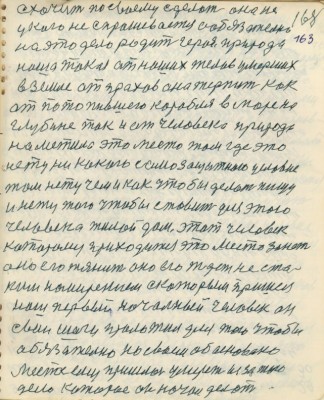 168
163
схочит по своему сделат она не
у кого не спрашивается обязательно
на это дело родит герой природа
наша такая от наших телов умерших
в земле от прахов она терпит как
от потопившего корабля в море на
глубине так и от человека природа
наметила это место там где это
нету никакого самозащитного условие
там нету чем и как чтобы делат пищу
и нету того чтобы ставит для этого
человека жилой дом этот человек
которому приходится это место занят
оно его тянит оно его ждет не ста-
рым намерением с которым пришел
наш первый началный человек он
свои шаги проложил для того чтобы
обязателно на своем обосновано
месте ему пришлос умерет из за того
дело которое он начал делат